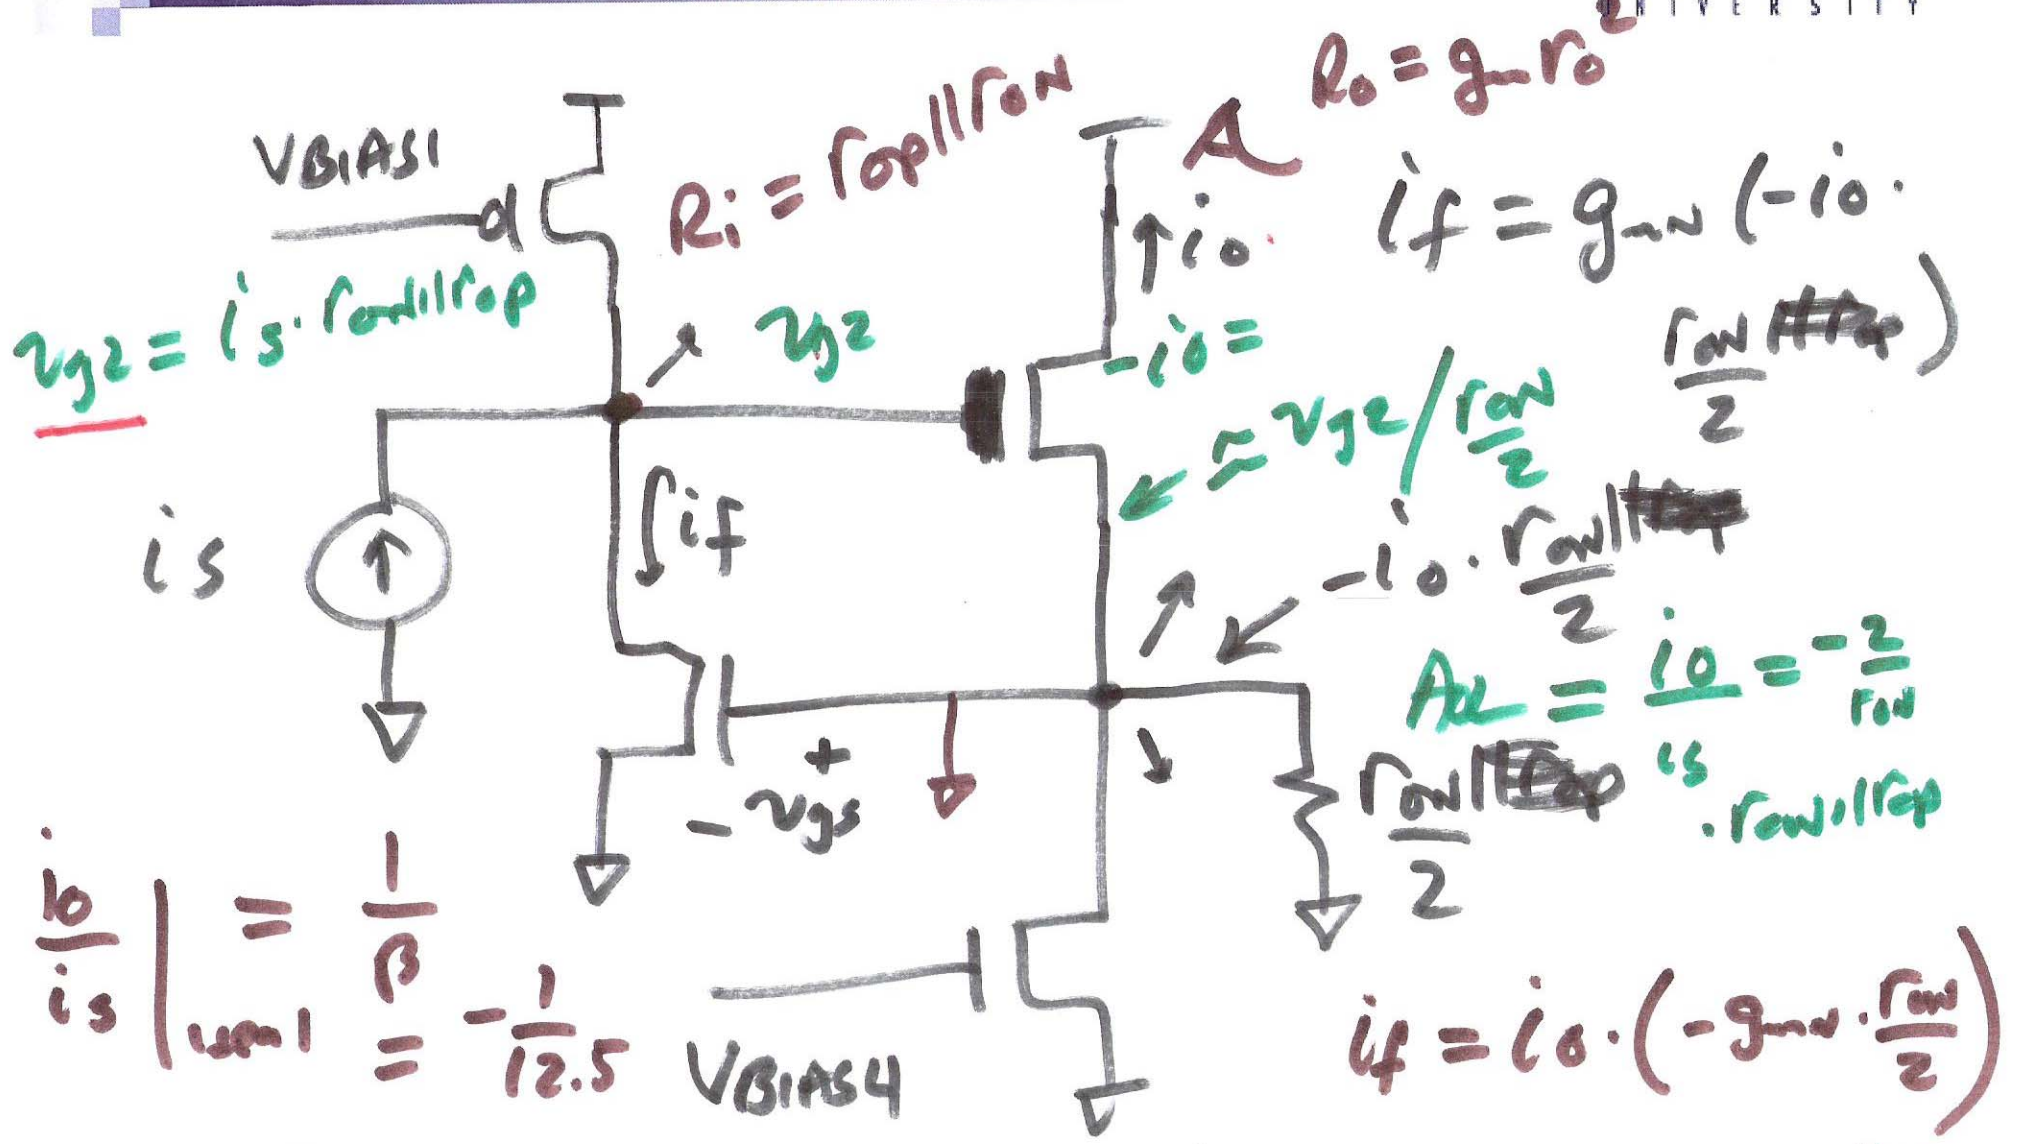 UNIVERSITY
Ro = gm ro²
Ri = rop||roN
A
VBIAS1
io
if = gmN (-io · roN/2)
vg2 = is · roN||rop
vg2
-io =
≈ vg2 / roN/2
if
is
-io · roN/2
AOL = io/is = -2/roN · roN||rop
+
- vgs
roN/2
io/is | = 1/β
= -1/12.5
VBIAS4
if = io · (-gmN · roN/2)